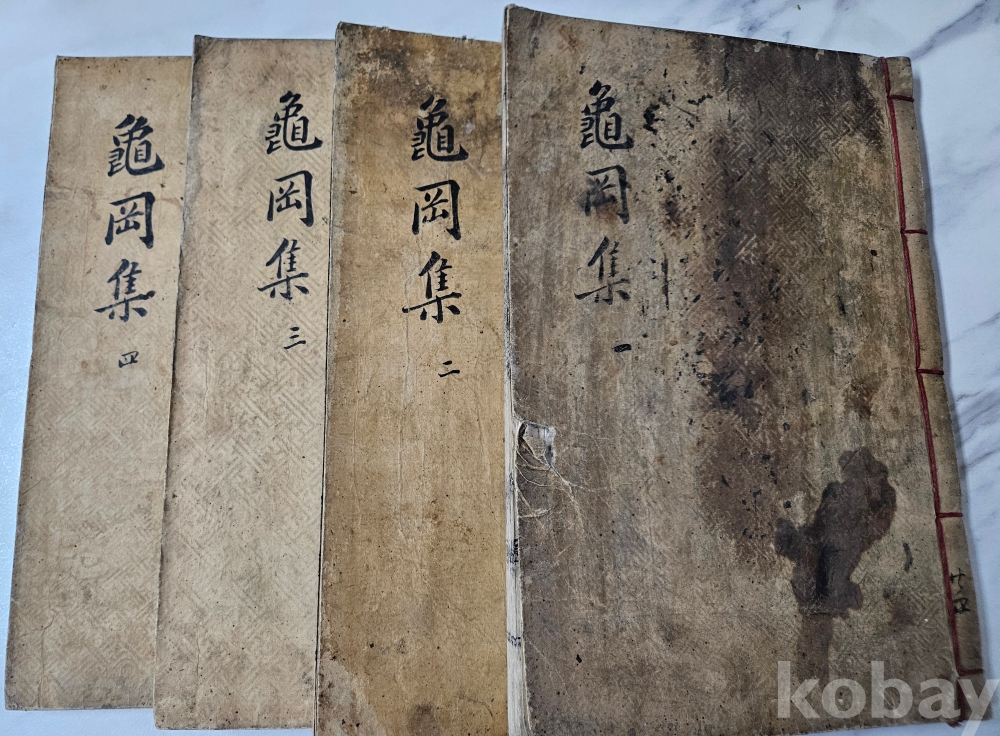 龜岡集 一
龜岡集 二
龜岡集 三
龜岡集 四
共四
kobay